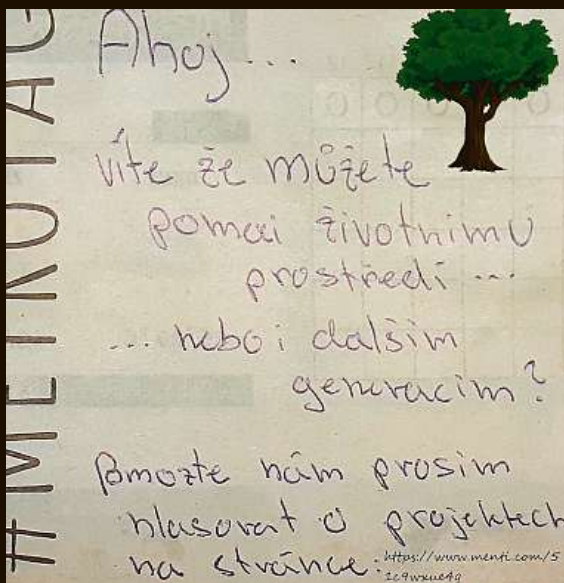 #METROTAG
Ahoj...
víte že můžete
pomoci životnimu
prostředi ...
... nebo i dalšim
generacim?
Pomozte nám prosim
hlasovat o projektech
na stránce:
https://www.menti.com/5
1c9wxue4q